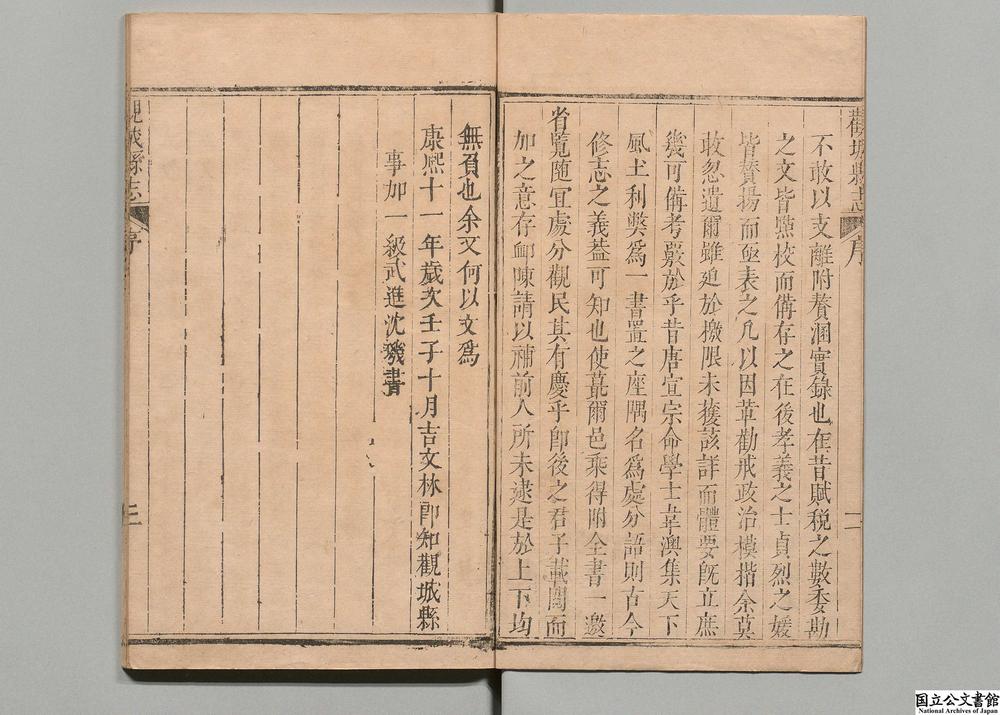 觀城縣志
序
二
不敢以支離附贅溷實錄也在昔賦稅之數委勘
之文皆㸃校而備存之在後孝義之士貞烈之媛
皆贊揚而亟表之凡以因革勸戒政治模揩余莫
敢忽遺爾雖迫於檄限未獲該詳而體要旣立庶
幾可備考覈於乎昔唐宣宗命學士韋澳集天下
風土利獘爲一書置之座隅名爲處分語則古今
修志之義葢可知也使蕞爾邑乘得附全書一邀
省覽隨宜處分觀民其有慶乎卽後之君子載閱而
加之意存卹陳請以補前人所未逮是於上下均
無負也余又何以文爲
康熙十一年歲次壬子十月吉文林郎知觀城縣
事加一級武進沈璣書
觀城縣志
序
三
国立公文書館
National Archives of Japan